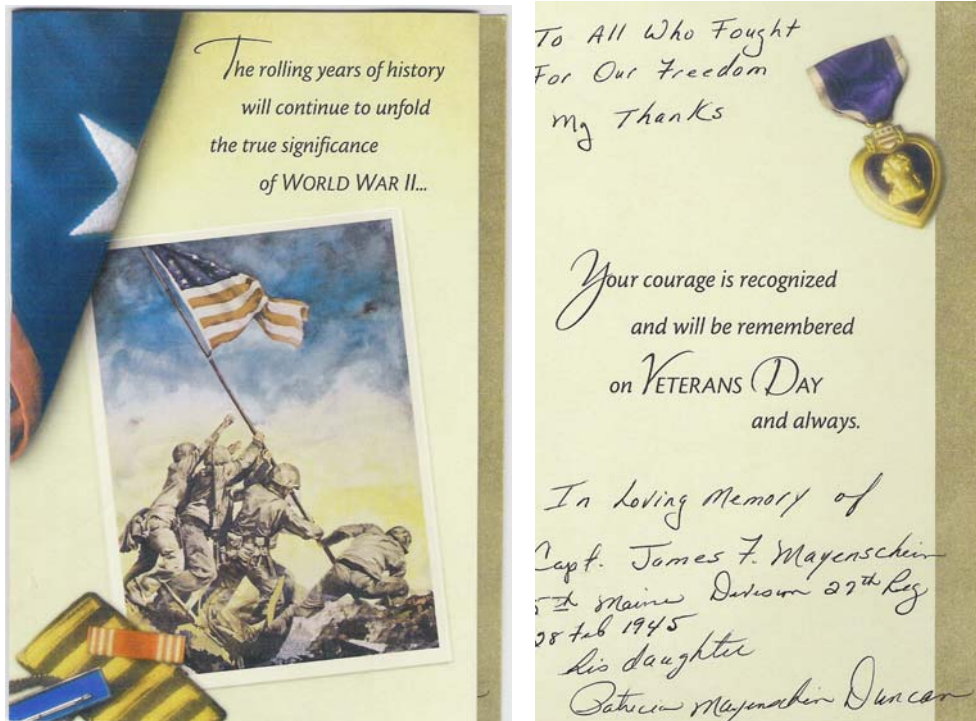 The rolling years of history
will continue to unfold
the true significance
of WORLD WAR II...
To All Who Fought
For Our Freedom
My Thanks
Your courage is recognized
and will be remembered
on VETERANS DAY
and always.
In Loving Memory of
Capt. James F. Mayenschein
5th Marine Division 27th Reg
28 Feb 1945
his daughter
Patricia Mayenschein Duncan